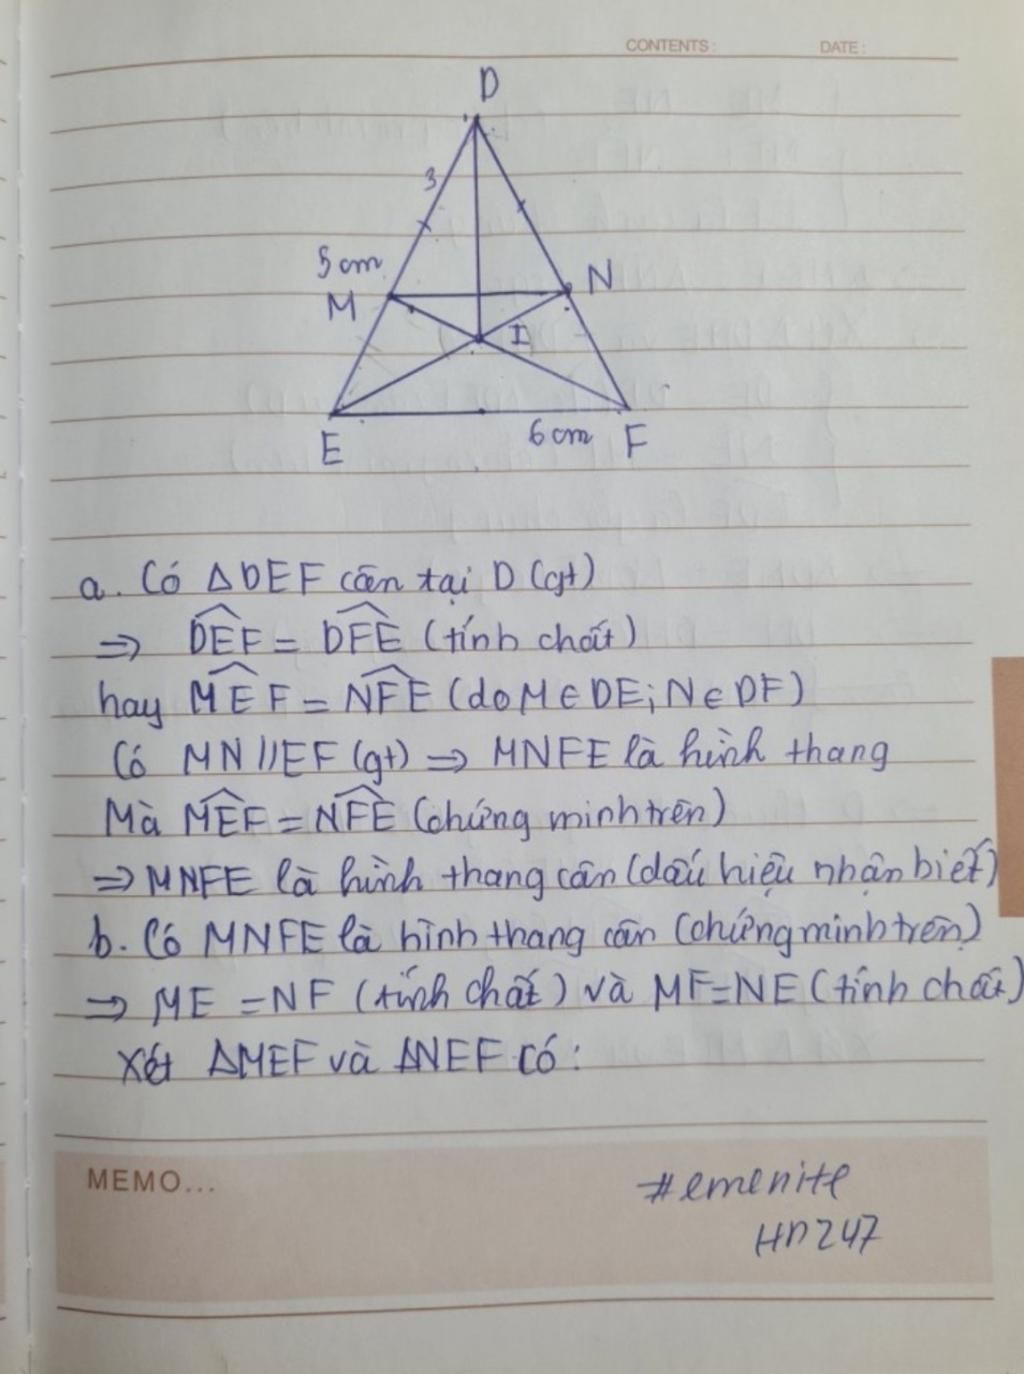 CONTENTS: DATE:
D
3
5cm
M N
I
E 6cm F
a. Có ΔDEF cân tại D (gt)
⇒ \widehat{DEF} = \widehat{DFE} (tính chất)
hay \widehat{MEF} = \widehat{NFE} (do M∈DE; N∈DF)
Có MN//EF (gt) ⇒ MNFE là hình thang
Mà \widehat{MEF} = \widehat{NFE} (chứng minh trên)
⇒ MNFE là hình thang cân (dấu hiệu nhận biết)
b. Có MNFE là hình thang cân (chứng minh trên)
⇒ ME = NF (tính chất) và MF=NE (tính chất)
Xét ΔMEF và ΔNEF có:
MEMO...
#emenite
HD247